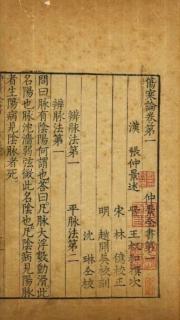 傷寒論卷第一　仲景全書第一
漢　張仲景述　晉　王叔和撰次
宋　林億校正
明　趙開美校刻
沈琳仝校
辨脈法第一　平脈法第二
辨脈法第一
問曰脉有陰陽何謂也答曰凡脉大浮數動滑此
名陽也脉沈濇弱弦微此名陰也凡陰病見陽脉
者生陽病見陰脉者死